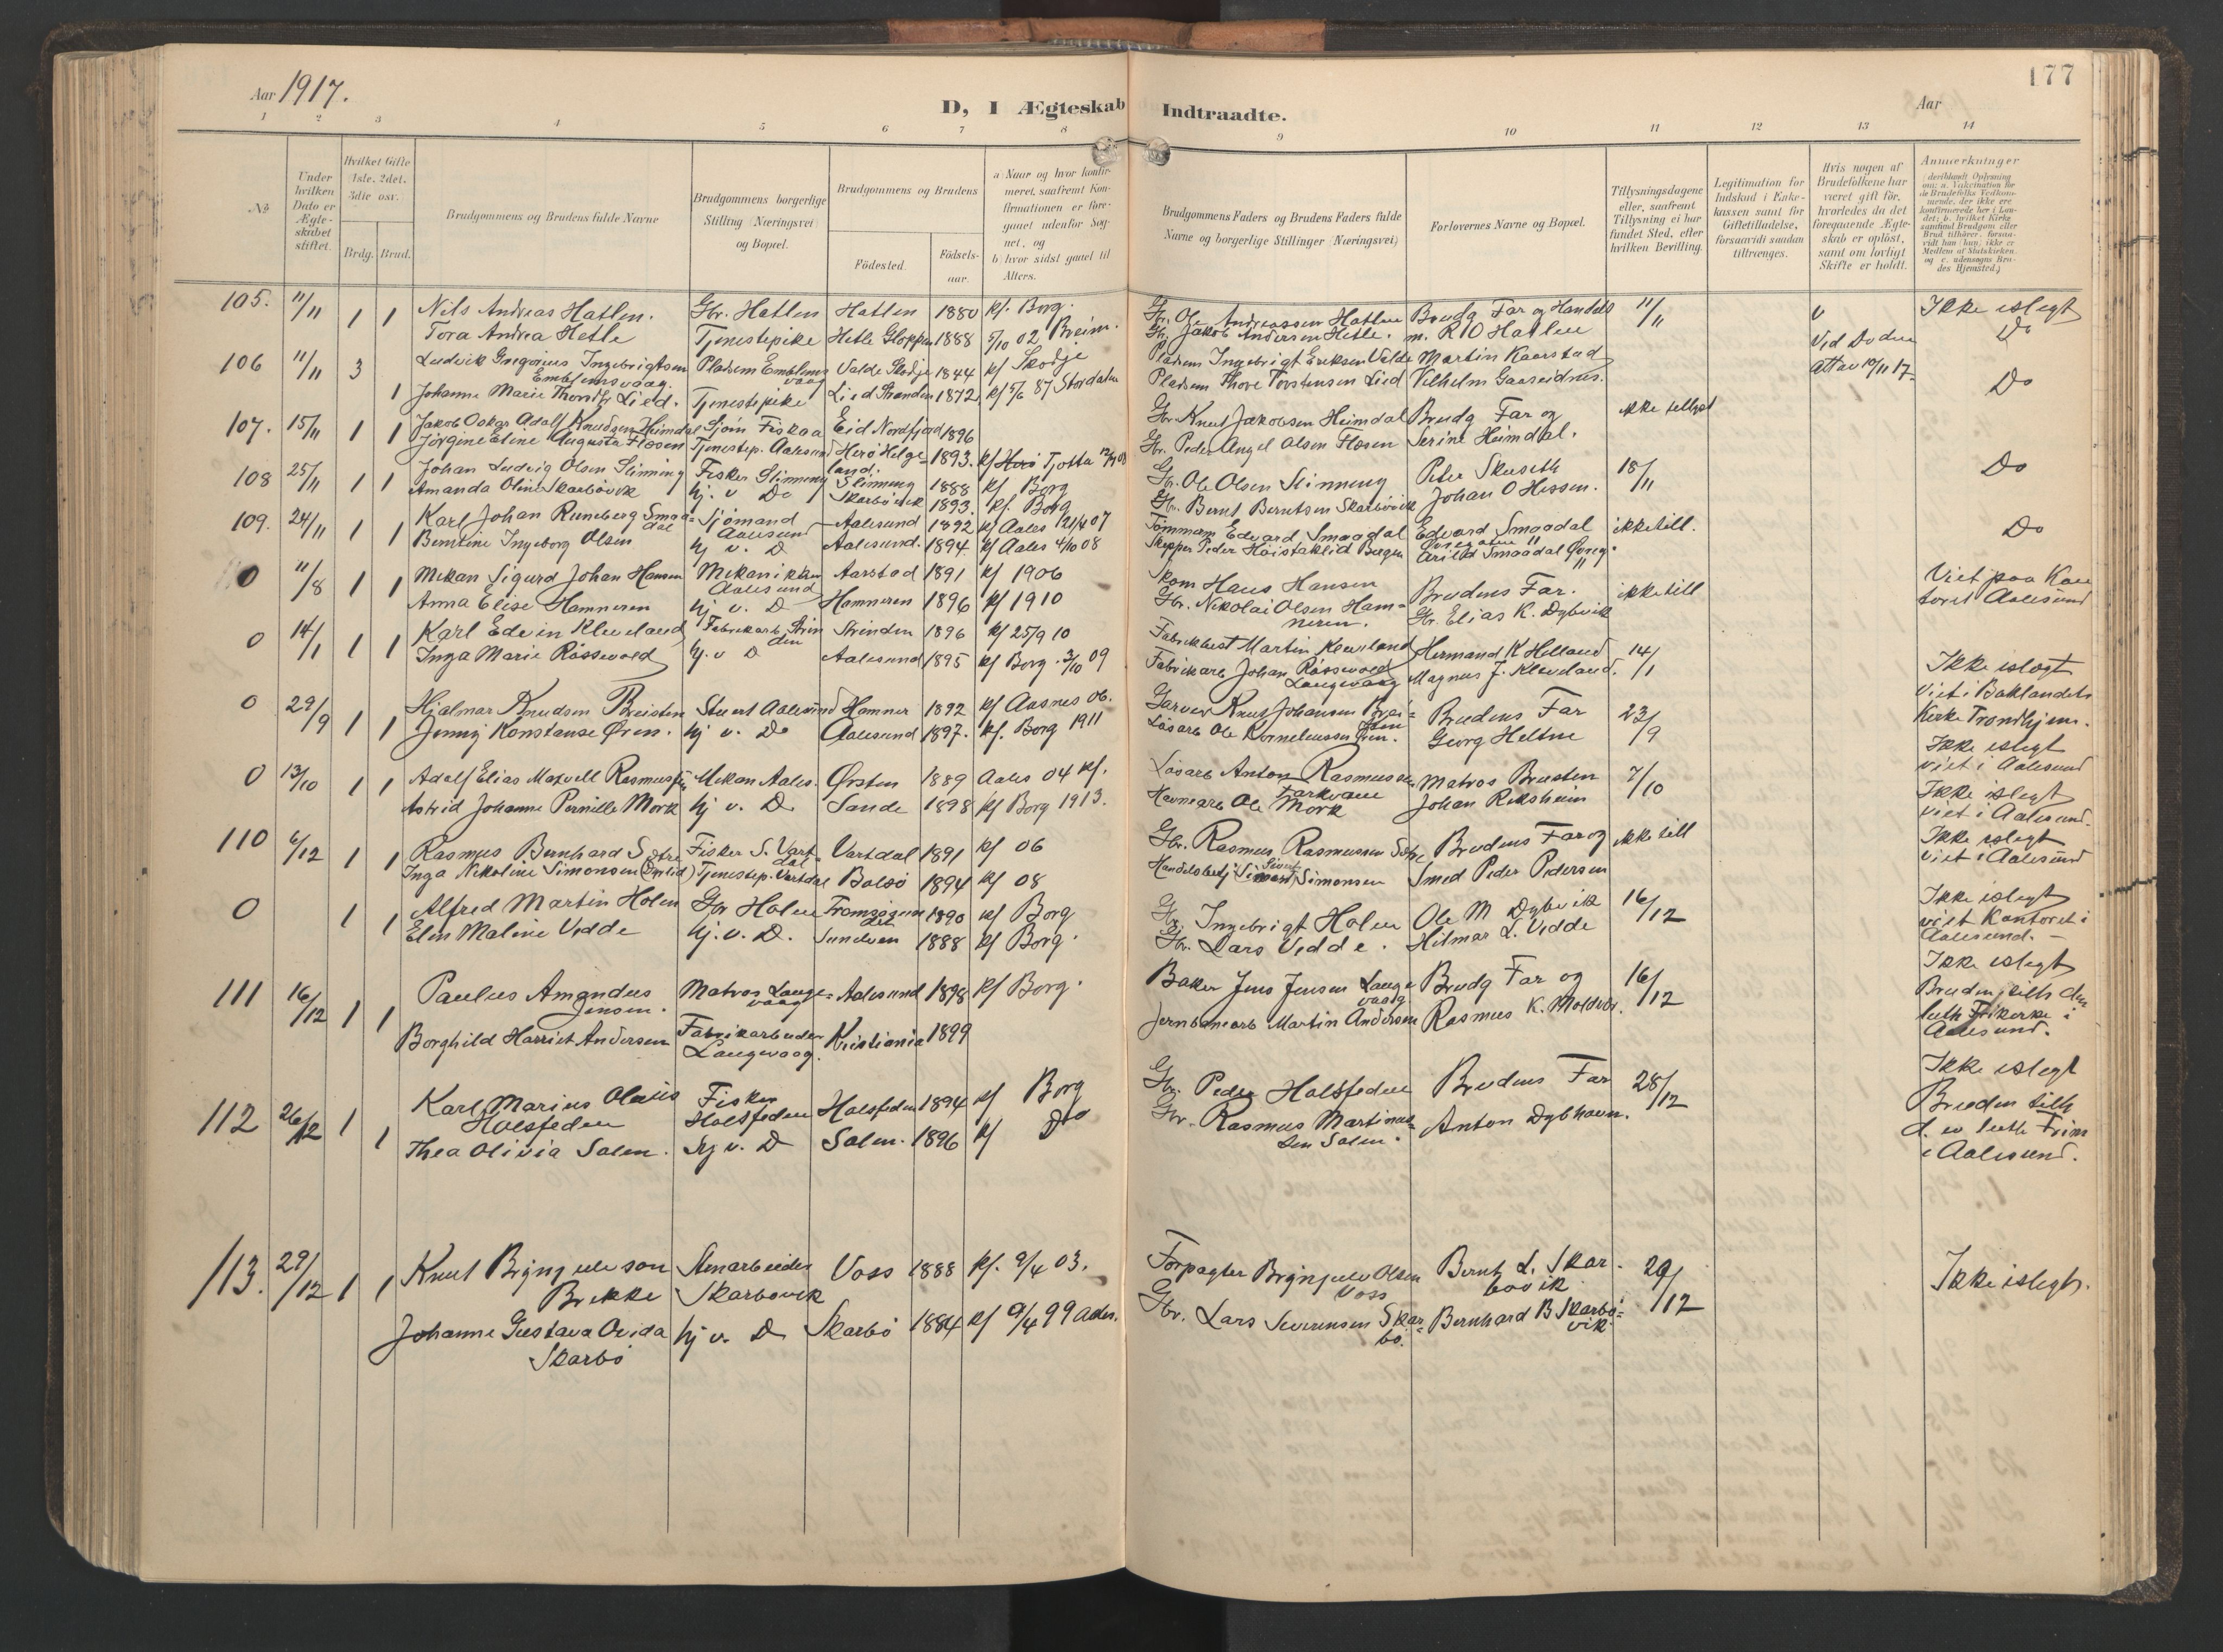 177
Aar 1917.
D, I Ægteskab Indtraadte.
Aar
1 2 3 4 5 6 7 8 9 10 11 12 13 14
No
Under hvilken Dato er Ægteskabet stiftet.
Hvilket Gifte 1ste, 2det, 3die osv.
Brdg. Brud.
Brudgommens og Brudens fulde Navne
Brudgommens borgerlige Stilling (Næringsvei) og Bopæl.
Brudgommens og Brudens
Födested.
Födselsaar.
a) Naar og hvor konfirmeret, saafremt Konfirmationen er foregaaet udenfor Sognet, og
b) hvor sidst gaaet til Alters.
Brudgommens Faders og Brudens Faders fulde Navne og borgerlige Stillinger (Næringsvei)
Forlovernes Navne og Bopæl.
Tillysningsdagene eller, saafremt Tillysning ei har fundet Sted, efter hvilken Bevilling.
Legitimation for Indskud i Enkekassen samt for Giftetilladelse, forsaavidt saadan tiltrænges.
Hvis nogen af Brudefolkene har været gift för, hvorledes da det foregaaende Ægteskab er oplöst, samt om lovligt Skifte er holdt.
Anmærkninger
105. 11/11 1 1 Nils Andreas Hatlen. Gbr. Hatlen Hatlen 1880 kf. Borg. Gbr. Ole Andreassen Hatlen Brudg Far og Handels 11/11 Ikke eslegt
Tora Andrea Hetle Tjenestepike Hetle Gloppen 1888 5/10 02 Breim. Gbr. Jakob Andersen Hetle. m. R O Hatlen Do
106 11/11 3 Ludvik Gregorius Ingebrigtsen Pladsm Emblems Valde Skodje 1844 kf Skodje Pladsm Ingebrigt Eriksen Valde Martin Kaarstad Ved Döden
Emblemsvaag. vaag
1 Johanne Marie Thorstd. Lied. Tjenestepike Lied Stranden 1872 kf 5/6 87 Stordalen Pladsm Thore Torstensen Lied Vilhelm Gaaseidnes. Do
107. 15/11 1 1 Jakob Oskar Adolf Knudsen Heimdal Sjöm Fiskaa Eid Nordfjord 1896 Gbr Knut Jakobsen Heimdal Brudg Far og ikke tillyst
Jörgine Eline Augusta Flosen Tjenestep. Aalesund Herö Helgeland. 1893. kf Tjotta Gbr. Peder Angel Olsen Flosen Serine Heimdal.
108 25/11 1 1 Johan Ludvig Olsen Slinning Fisker Slinning Slinning 1888 kf. Borg Gbr. Ole Olsen Slinning Peter Skuseth 18/11 Do
Amanda Oline Skarbövik hj. v Do Skarbövik 1893. kf. Borg Gbr. Bernt Berntsen Skarbövik Johan O Hessen.
109. 24/11 1 1 Karl Johan Runeberg Smaadal Sjömand Aalesund Aalesund 1892 kf Aales 21/4 07 Tömmerm Edvard Smaadal Edvard Smaadal ikke till. Do
Berntine Ingeborg Olsen hj v. D Aalesund. 1894. kf Aales 4/10 08 Skipper Peder Höistaklid Bergen Arild Smaadal
0 11/8 1 1 Mekan Sigurd Johan Hansen Mekaniker Aalesund Aarstad 1891 kf 1906 Skom Hans Hansen Brudens Far. ikke till Viet paa Kontoret Aalesund
Anna Elise Hamneren hj v. D Hamneren 1896 kf 1910 Gbr. Nikolai Olsen Hamneren. Gbr. Elias K. Dybvik
0 14/1 1 1 Karl Edvin Kleveland Fabrikarb Strinden Strinden 1896 kf 25/9 10 Fabrikbest Martin Kleveland Hermand K Helland 14/1 Ikke eslegt
Inga Marie Rössevold hj. v D Aalesund 1895 kf Borg. 3/10 09 Fabrikarb Johan Rössevold Langevaag Magnus J. Kleveland. Viet i Baklandets Kirke Trondhjem.
0 29/9 1 1 Hjalmar Knudsen Breisten Stuert Aalesund Hamner 1892 kf Aasnes 06. Garver Knut Johansen Breisten Brudens Far 23/9 Ikke eslegt
Jenny Konstanse Øren. hj v. Do Aalesund 1897. kf. Borg 1911 Lösarb Ole Korneliussen Øren. Georg Heltne viet i Aalesund
0 13/10 1 1 Adolf Elias Maxvell Rasmussen Mekan Aales. Ørsten 1889 Aales 04 kf. Lösarb Anton Rasmussen Matros Breisten 7/10 Ikke eslegt
Astrid Johanne Pernille Mork hj v. D Sande 1898 kf Borg 1913. Havnearb Ole Mork Johan Reksheim viet i Aalesund.
110 6/12 1 1 Rasmus Bernhard Sætre Fisker S. Vartdal Vartdal 1891 kf 06 Gbr. Rasmus Rasmussen Sætre Brudens Far og ikke till Ikke eslegt
Inga Nikoline Simonsen Tjenestep. Vartdal Bolsö 1894 kf 08 Handelsbetj Sivert Simonsen Smed Peder Pedersen viet i Aalesund
0 1 1 Alfred Martin Holen Gbr Holen 1890 kf Borg Gbr. Ingebrigt Holen Ole M Dybvik 16/12 Ikke eslegt
Elen Maline Vedde hj. v. D. Sundven 1888 kf Borg. Gbr. Lars Vedde. Hilmar L. Vedde viet Kontoret i Aalesund.
111 16/12 1 1 Paulus Amandus Jensen. Matros Langevaag Aalesund 1898 kf Borg. Baker Jens Jensen Langevaag Brudg Far og 16/12 Ikke eslegt
Borghild Harriet Andersen Fabrikarbeider Langevaag. Kristiania 1899 Jernbanearb Martin Andersen Rasmus K. Molvær. Bruden tilh den luth Frikirke i Aalesund.
112 26/12 1 1 Karl Marius Olaus Holsfeden Fisker Holsfeden Holsfeden 1894 kf Borg Gbr. Peder Holsfeden Brudens Far 28/12 Ikke eslegt
Thea Olivia Solem. hj v. D Solem. 1896 kf Do Gbr. Rasmus Martinussen Solem. Anton Dybhavn. Bruden tilh d. ev luth i Aalesund.
113. 29/12 1 1 Knut Brynjulvson Brekke Stenarbeider Skarbövik Voss 1888 kf. 9/4 03. Forpagter Brynjulv Olsen Voss Bernt L. Skarbövik 29/12 Ikke eslegt.
Johanne Gustava Ovida Skarbö hj v. D Skarbö 1884 kf 9/4 99 Gbr. Lars Severinsen Skarbö. Bernhard B Skarbövik